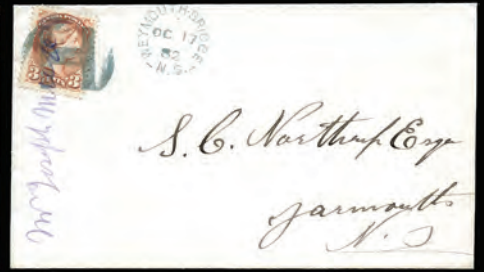 3 3
WEYMOUTH-BRIDGE
OC 17
82
N.S.
S. C. Northrup Esqr
Yarmouth
N. S